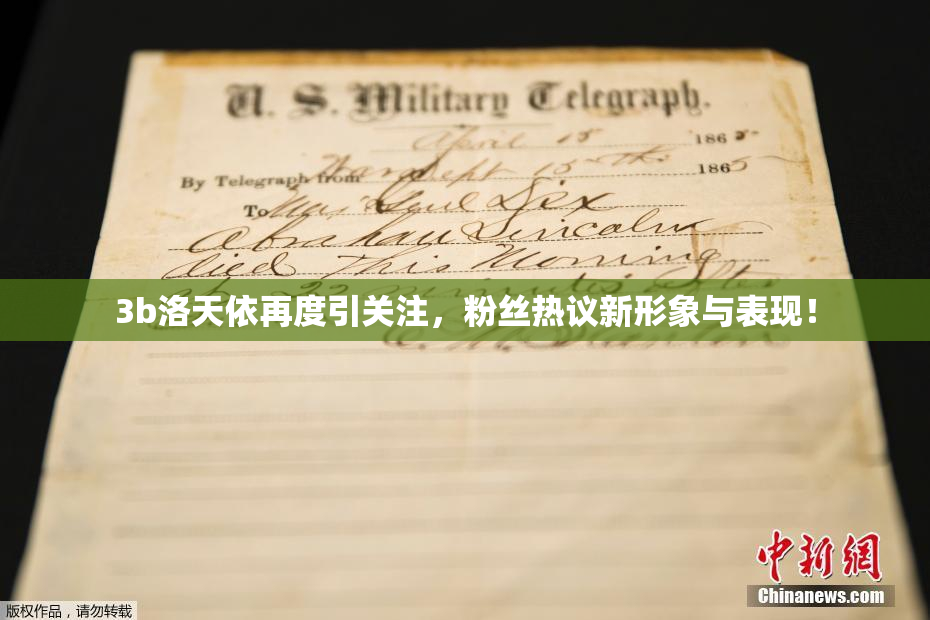 U. S. Military Telegraph.
April 15 1865.
By Telegraph from Wash Sept 15th 1865
To Maj Genl Dix
Abraham Lincoln
died This Morning
at 22 minutes after
E. M. Stanton
3b洛天依再度引关注，粉丝热议新形象与表现！
中新网
Chinanews.com
版权作品，请勿转载